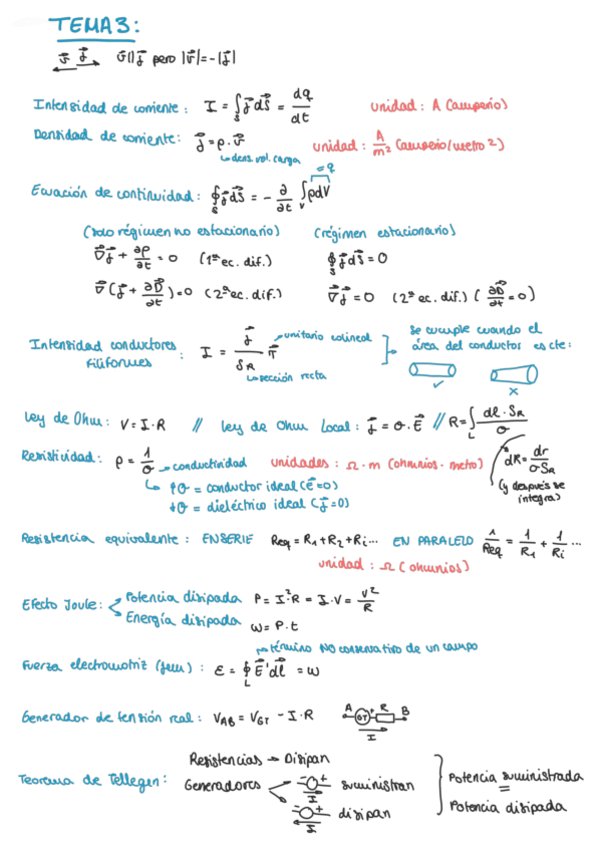 TEMA 3:
v⃗ j⃗ v⃗ || j⃗ pero |v⃗| = -|j⃗|
Intensidad de corriente: I = ∫_S j⃗ dS⃗ = dq/dt unidad: A (amperio)
Densidad de corriente: j⃗ = ρ · v⃗ unidad: A/m² (amperio/metro 2)
↳ dens. vol. carga
= q
Ecuación de continuidad: ∮_S j⃗ dS⃗ = - ∂/∂t ∫_V ρ dV
(solo régimen no estacionario) (régimen estacionario)
∇⃗ j⃗ + ∂ρ/∂t = 0 (1ª ec. dif.) ∮_S j⃗ dS⃗ = 0
∇⃗ (j⃗ + ∂D⃗/∂t) = 0 (2ª ec. dif.) ∇⃗ j⃗ = 0 (2ª ec. dif.) (∂D⃗/∂t = 0)
Intensidad conductores filiformes: I = j⃗/S_R n⃗
→ unitario colineal
↳ sección recta
Se cumple cuando el
área del conductor es cte:
✓ ×
Ley de Ohm: V = I · R // Ley de Ohm Local: j⃗ = σ · E⃗ // R = ∫_L dl · S_R/σ
Resistividad: ρ = 1/σ → conductividad unidades: Ω · m (ohmnios · metro) dR = dr/σ S_R
↳ ↑σ = conductor ideal (E⃗ = 0) (y después se
↓σ = dieléctrico ideal (j⃗ = 0) integra)
Resistencia equivalente: EN SERIE Req = R1 + R2 + Ri ... EN PARALELO 1/Req = 1/R1 + 1/Ri ...
unidad: Ω (ohmnios)
Efecto Joule: Potencia disipada P = I² · R = I · V = V²/R
Energía disipada w = P · t
→ término NO conservativo de un campo
Fuerza electromotriz (fem): ε = ∮_L E⃗' dl⃗ = w
Generador de tensión real: V_AB = V_GT - I · R A GT + R B
I
Resistencias → Disipan
Teorema de Tellegen: Generadores - + I suministran
- + I disipan
Potencia suministrada
=
Potencia disipada